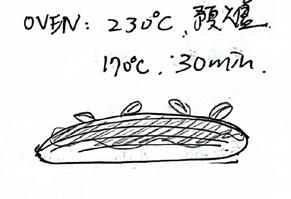 OVEN: 230°C, 預爐
170°C, 30min.